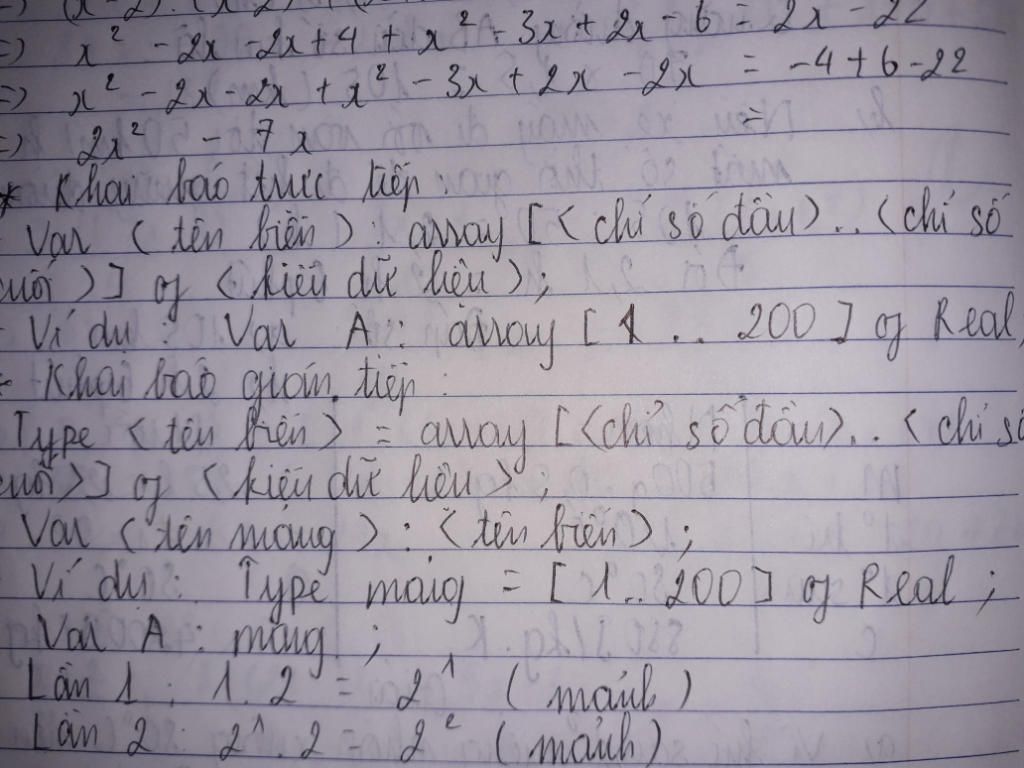 =) x² - 2x - 2x + 4 + x² - 3x + 2x - 6 = 2x - 22
=) x² - 2x - 2x + x² - 3x + 2x - 2x = -4 + 6 - 22
=) 2x² - 7x =
* Khai báo trực tiếp
- Var <tên biến> : array [<chỉ số đầu>..<chỉ số
cuối>] of <kiểu dữ liệu>;
- Ví dụ : Var A : array [1..200] of Real,
- Khai báo gián tiếp :
Type <tên biến> = array [<chỉ số đầu>..<chỉ số
cuối>] of <kiểu dữ liệu>;
Var <tên mảng> : <tên biến>;
Ví dụ : Type mảng = [1..200] of Real;
Var A : mảng ;
Lần 1 : 1.2 = 2¹ (mảnh)
Lần 2 : 2¹.2 = 2² (mảnh)